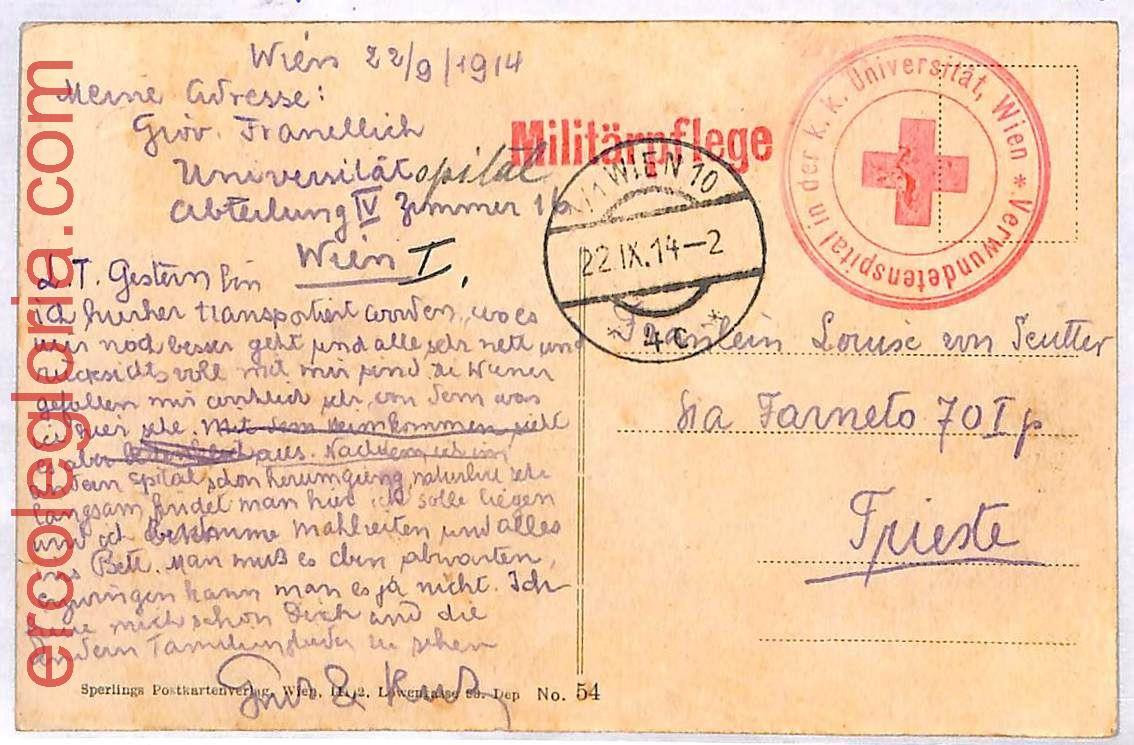 Wien 22/9/1914
Meine Adresse:
Giov. Franellich
Universitätspital
Abteilung IV Zimmer 16
Wien I.
Militärpflege
Verwundetenspital in der k. k. Universität, Wien *
WIEN 10
22 IX. 14—2
* 4c *
L. T. Gestern bin
ich hierher transportiert worden, wo es
mir noch besser geht und alle sehr nett und
rücksichtsvoll mit mir sind. Die Wiener
gefallen mir wirklich sehr, von dem was
ich hier sehe. Mit dem Heimkommen sieht
es aber aus. Nachdem ich im
andern Spital schon herumging natürlich sehr
langsam findet man hier ich solle liegen
und ich bekomme Mahlzeiten und alles
ins Bett. Man muß es eben abwarten,
erzwingen kann man es ja nicht. Ich
freue mich schon Dich und die
andern Familienglieder zu sehen
Gruß & Kuß
Fräulein Louise von Seutter
Via Farneto 70 I p
Trieste
Sperlings Postkartenverlag, Wien, III/2. Löwengasse Dep No. 54
ercolegloria.com